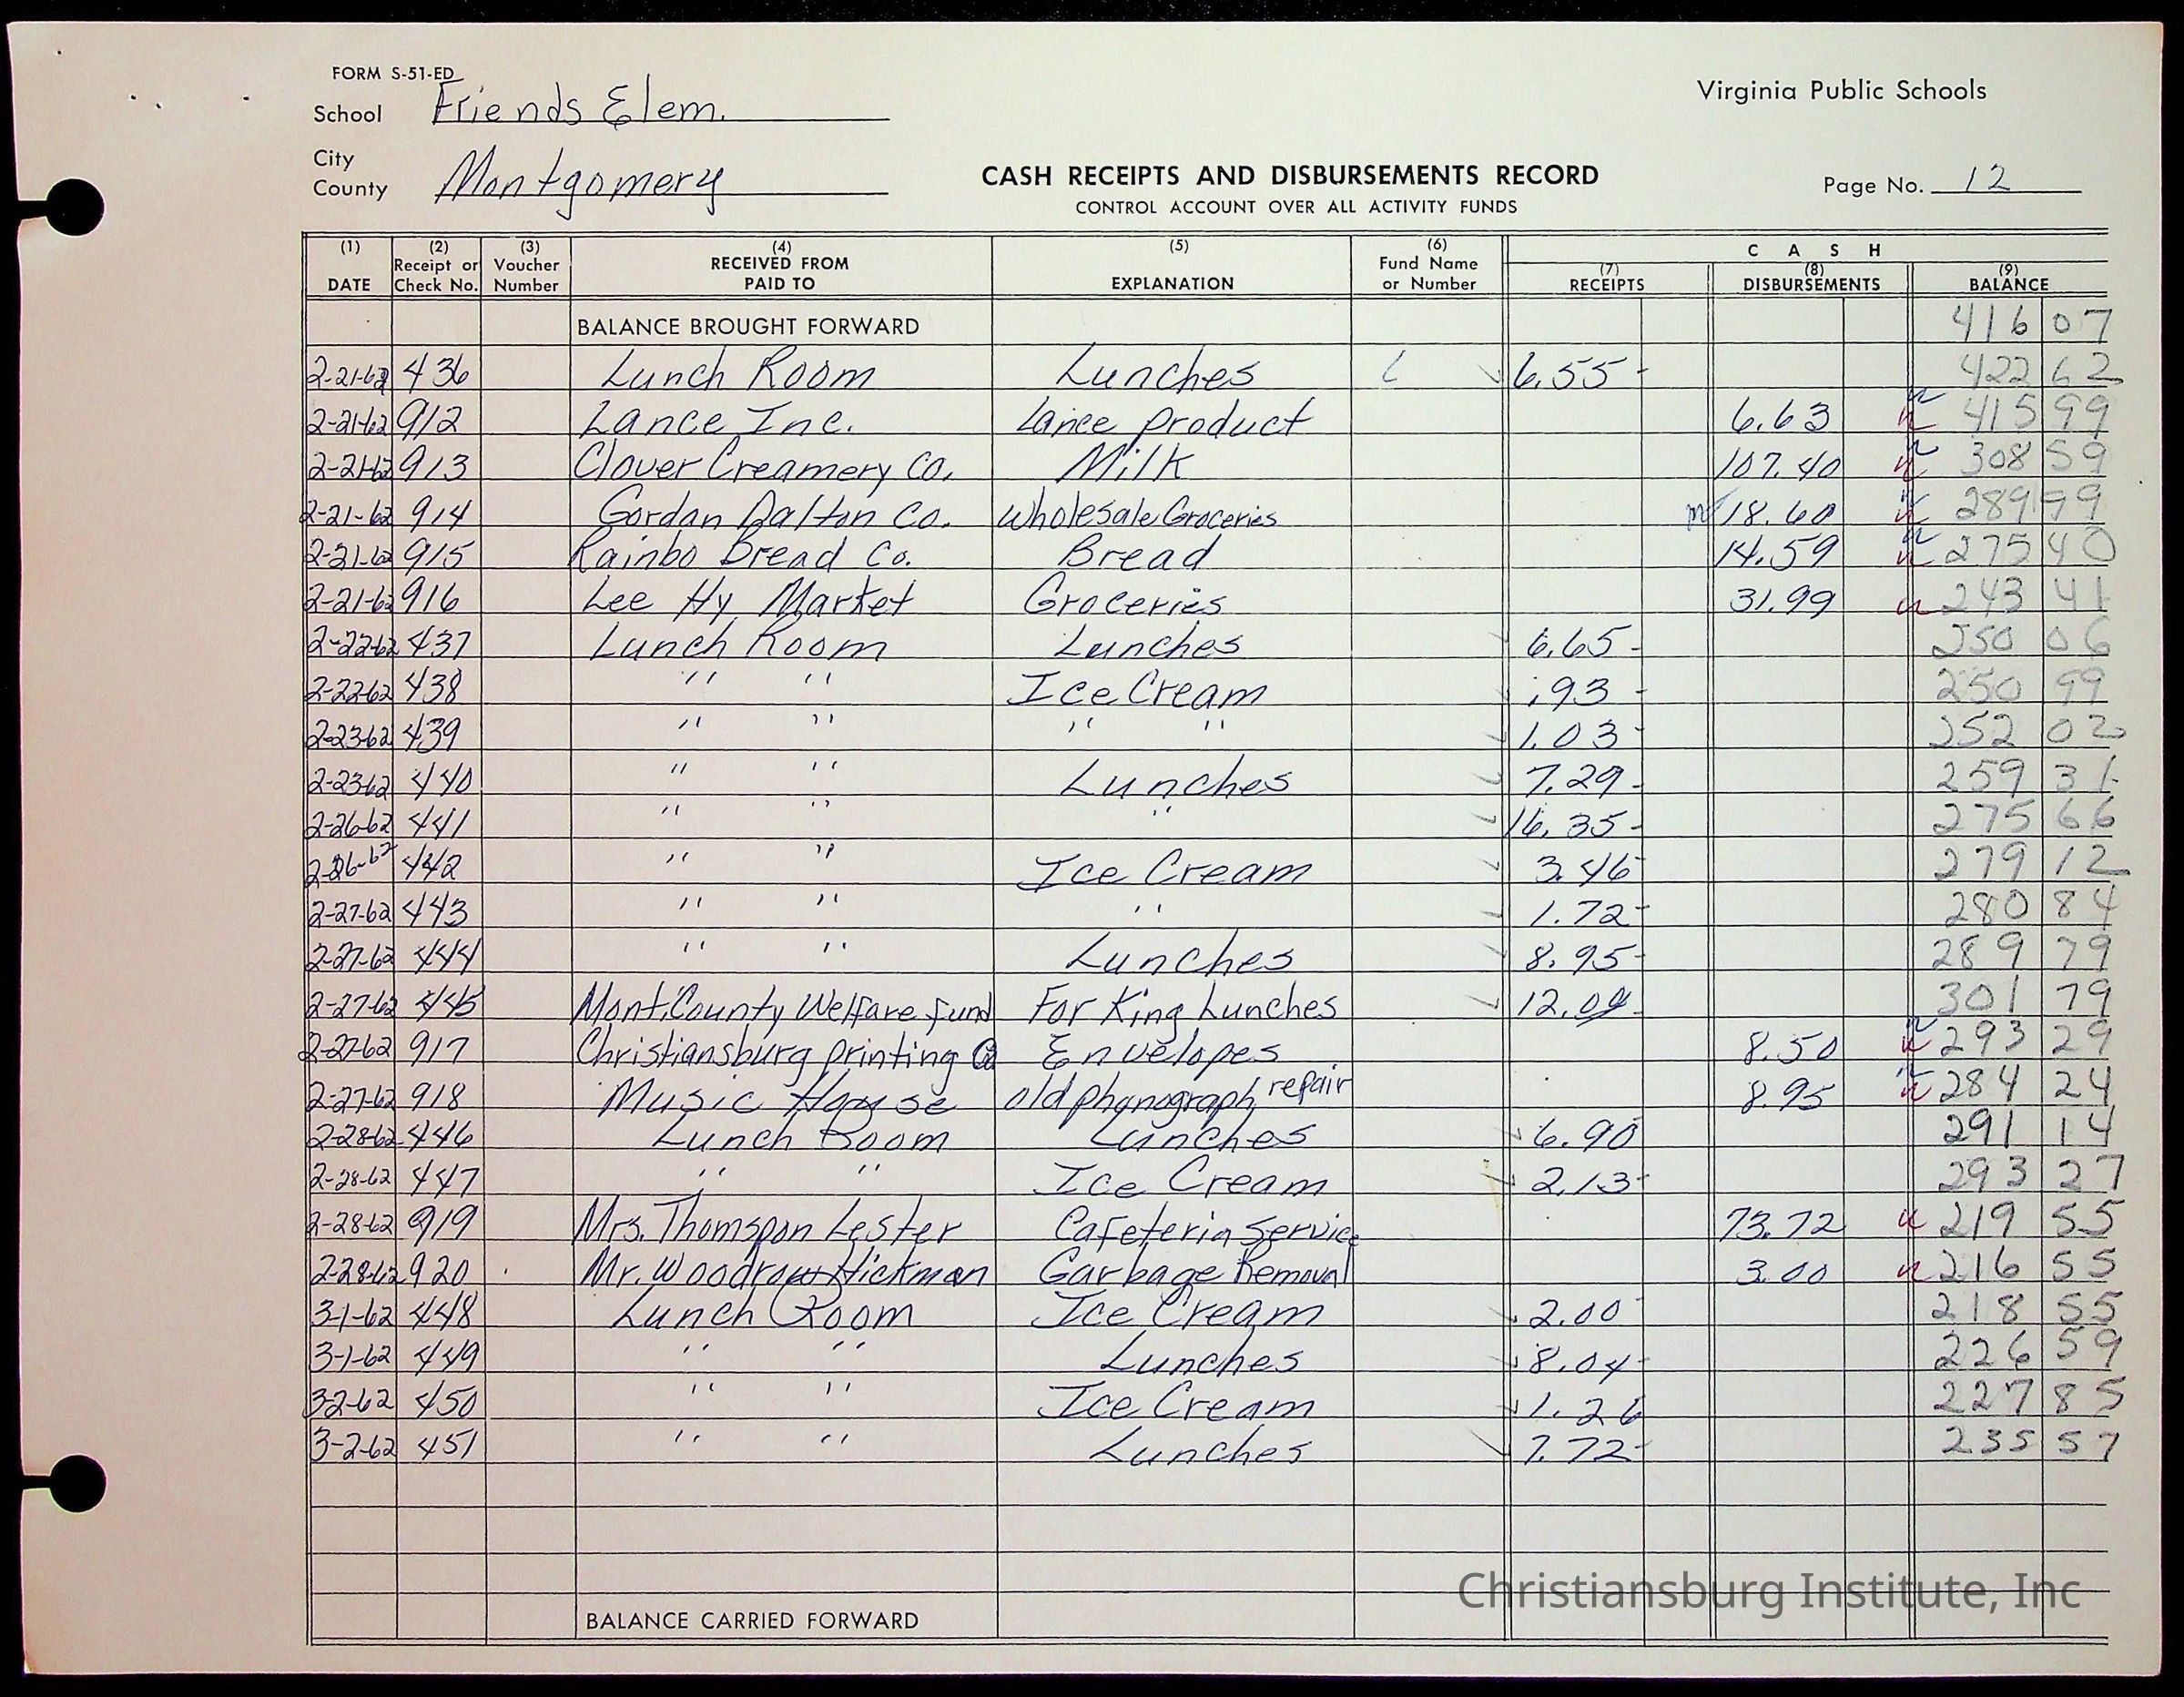 FORM S-51-ED
Virginia Public Schools
School Friends Elem.
City
County Montgomery
CASH RECEIPTS AND DISBURSEMENTS RECORD
Page No. 12
CONTROL ACCOUNT OVER ALL ACTIVITY FUNDS
(1) DATE (2) Receipt or Check No. (3) Voucher Number (4) RECEIVED FROM PAID TO (5) EXPLANATION (6) Fund Name or Number CASH (7) RECEIPTS (8) DISBURSEMENTS (9) BALANCE
BALANCE BROUGHT FORWARD 416 07
2-21-62 436 Lunch Room Lunches 6.55- 422 62
2-21-62 912 Lance Inc. Lance product 6.63 415 99
2-21-62 913 Clover Creamery Co. Milk 107.40 308 59
2-21-62 914 Gordan Dalton Co. Wholesale Groceries 18.60 289 99
2-21-62 915 Rainbo Bread Co. Bread 14.59 275 40
2-21-62 916 Lee Hy Market Groceries 31.99 243 41
2-22-62 437 Lunch Room Lunches 6.65- 250 06
2-22-62 438 " " Ice Cream .93- 250 99
2-23-62 439 " " " " 1.03- 252 02
2-23-62 440 " " Lunches 7.29- 259 31
2-26-62 441 " " " 16.35- 275 66
2-26-62 442 " " Ice Cream 3.46- 279 12
2-27-62 443 " " " 1.72- 280 84
2-27-62 444 " " Lunches 8.95- 289 79
2-27-62 445 Mont. County Welfare fund For King Lunches 12.00 301 79
2-27-62 917 Christiansburg printing Co Envelopes 8.50 293 29
2-27-62 918 Music House old phonograph repair 8.95 284 24
2-28-62 446 Lunch Room Lunches 6.90 291 14
2-28-62 447 " " Ice Cream 2.13- 293 27
2-28-62 919 Mrs. Thomspon Lester Cafeteria Service 73.72 219 55
2-28-62 920 Mr. Woodrow Hickman Garbage Removal 3.00 216 55
3-1-62 448 Lunch Room Ice Cream 2.00- 218 55
3-1-62 449 " " Lunches 8.04- 226 59
3-2-62 450 " " Ice Cream 1.26 227 85
3-2-62 451 " " Lunches 7.72- 235 57
BALANCE CARRIED FORWARD
Christiansburg Institute, Inc